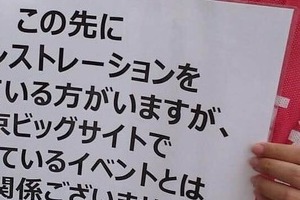 この先に
レストレーションを
ている方がいますが、
京ビッグサイトで
ているイベントとは
関係ございませ